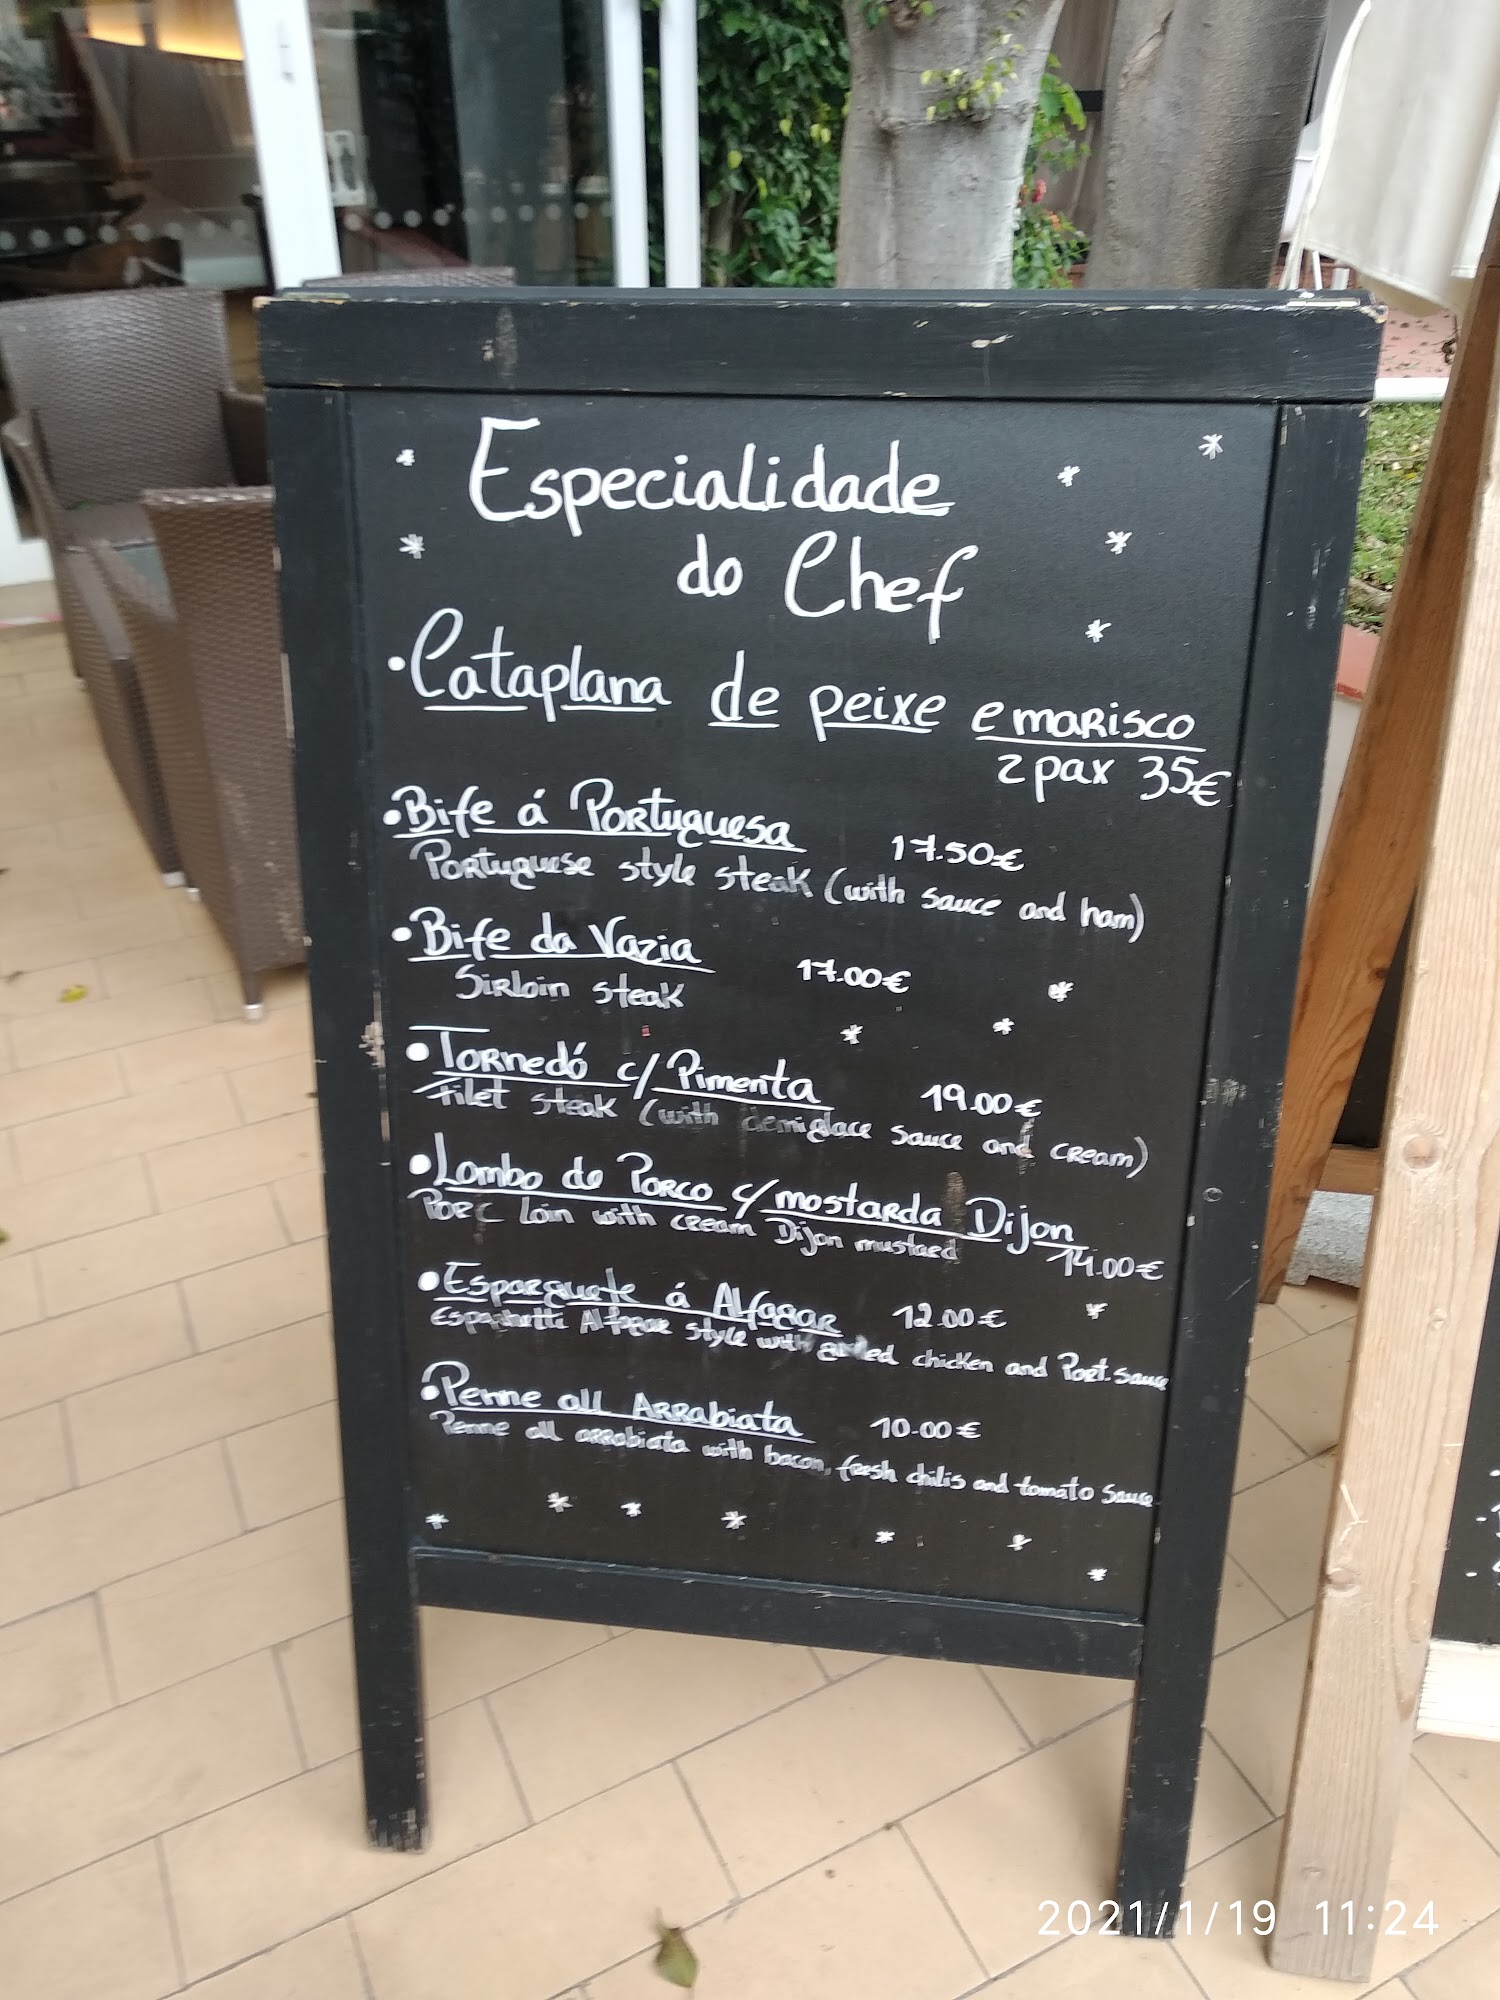 Especialidade
do Chef
• Cataplana de peixe e marisco
2 pax 35€
• Bife á Portuguesa 17.50€
Portuguese style steak (with sauce and ham)
• Bife da Vazia 17.00€
Sirloin steak
• Tornedó c/ Pimenta 19.00€
Filet steak (with demiglace sauce and cream)
• Lombo de Porco c/ mostarda Dijon
Porc loin with cream Dijon mustard 14.00€
• Esparguete á Alfagar 12.00€
Espaghetti Alfagar style with grilled chicken and Port. sauce
• Penne all Arrabiata 10.00€
Penne all arrabiata with bacon, fresh chilis and tomato sauce
2021/1/19 11:24